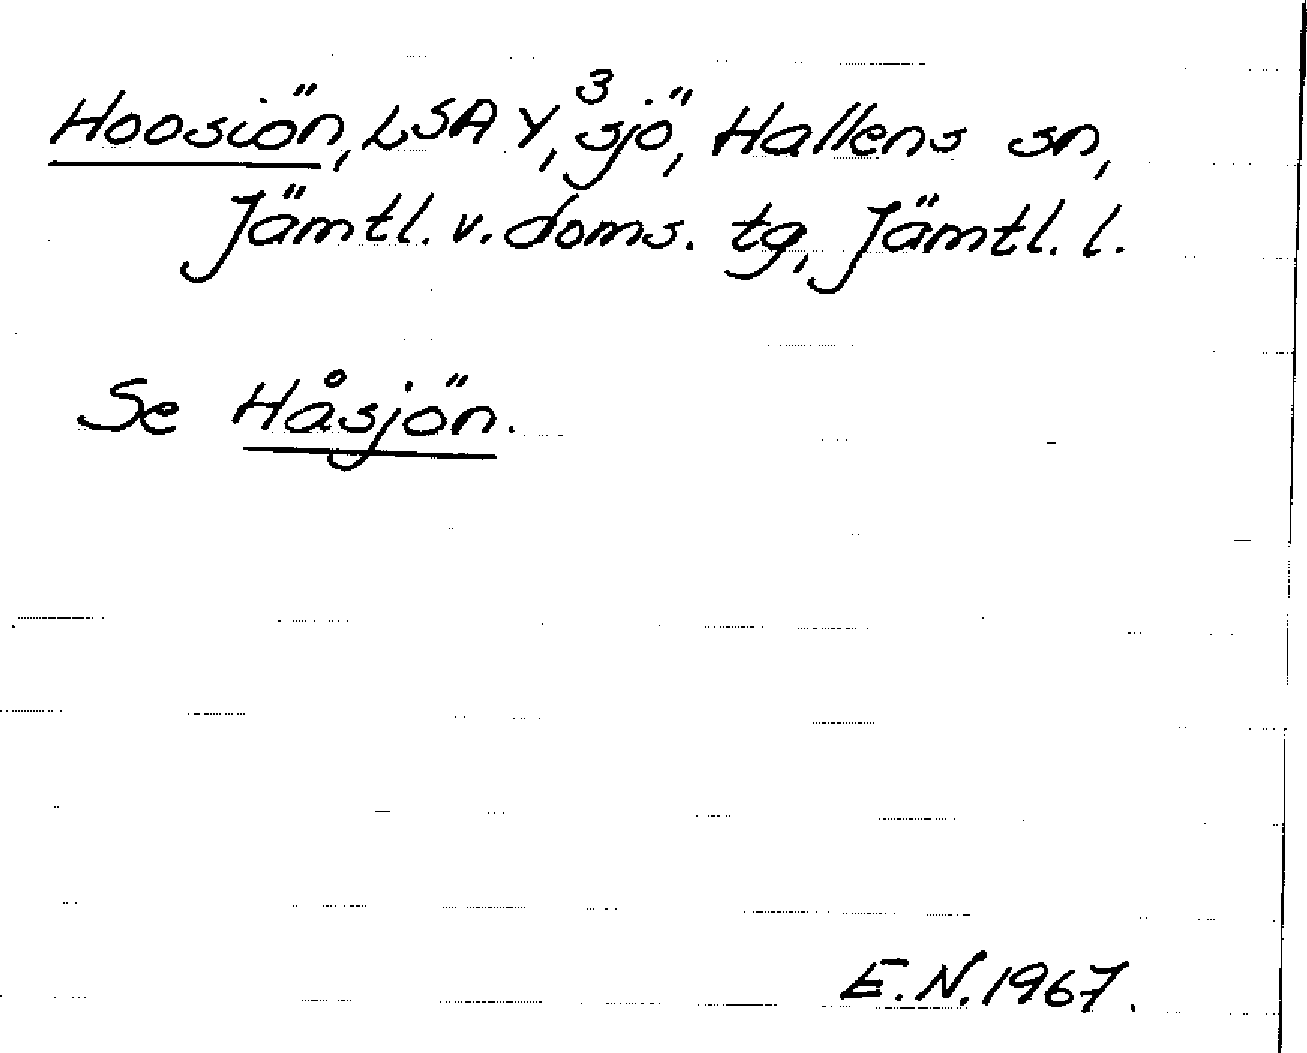 Hoosiön, LSA Y,³ sjö, Hallens sn,
Jämtl. v. doms. tg, Jämtl. l.
Se Håsjön.
E.N. 1967.